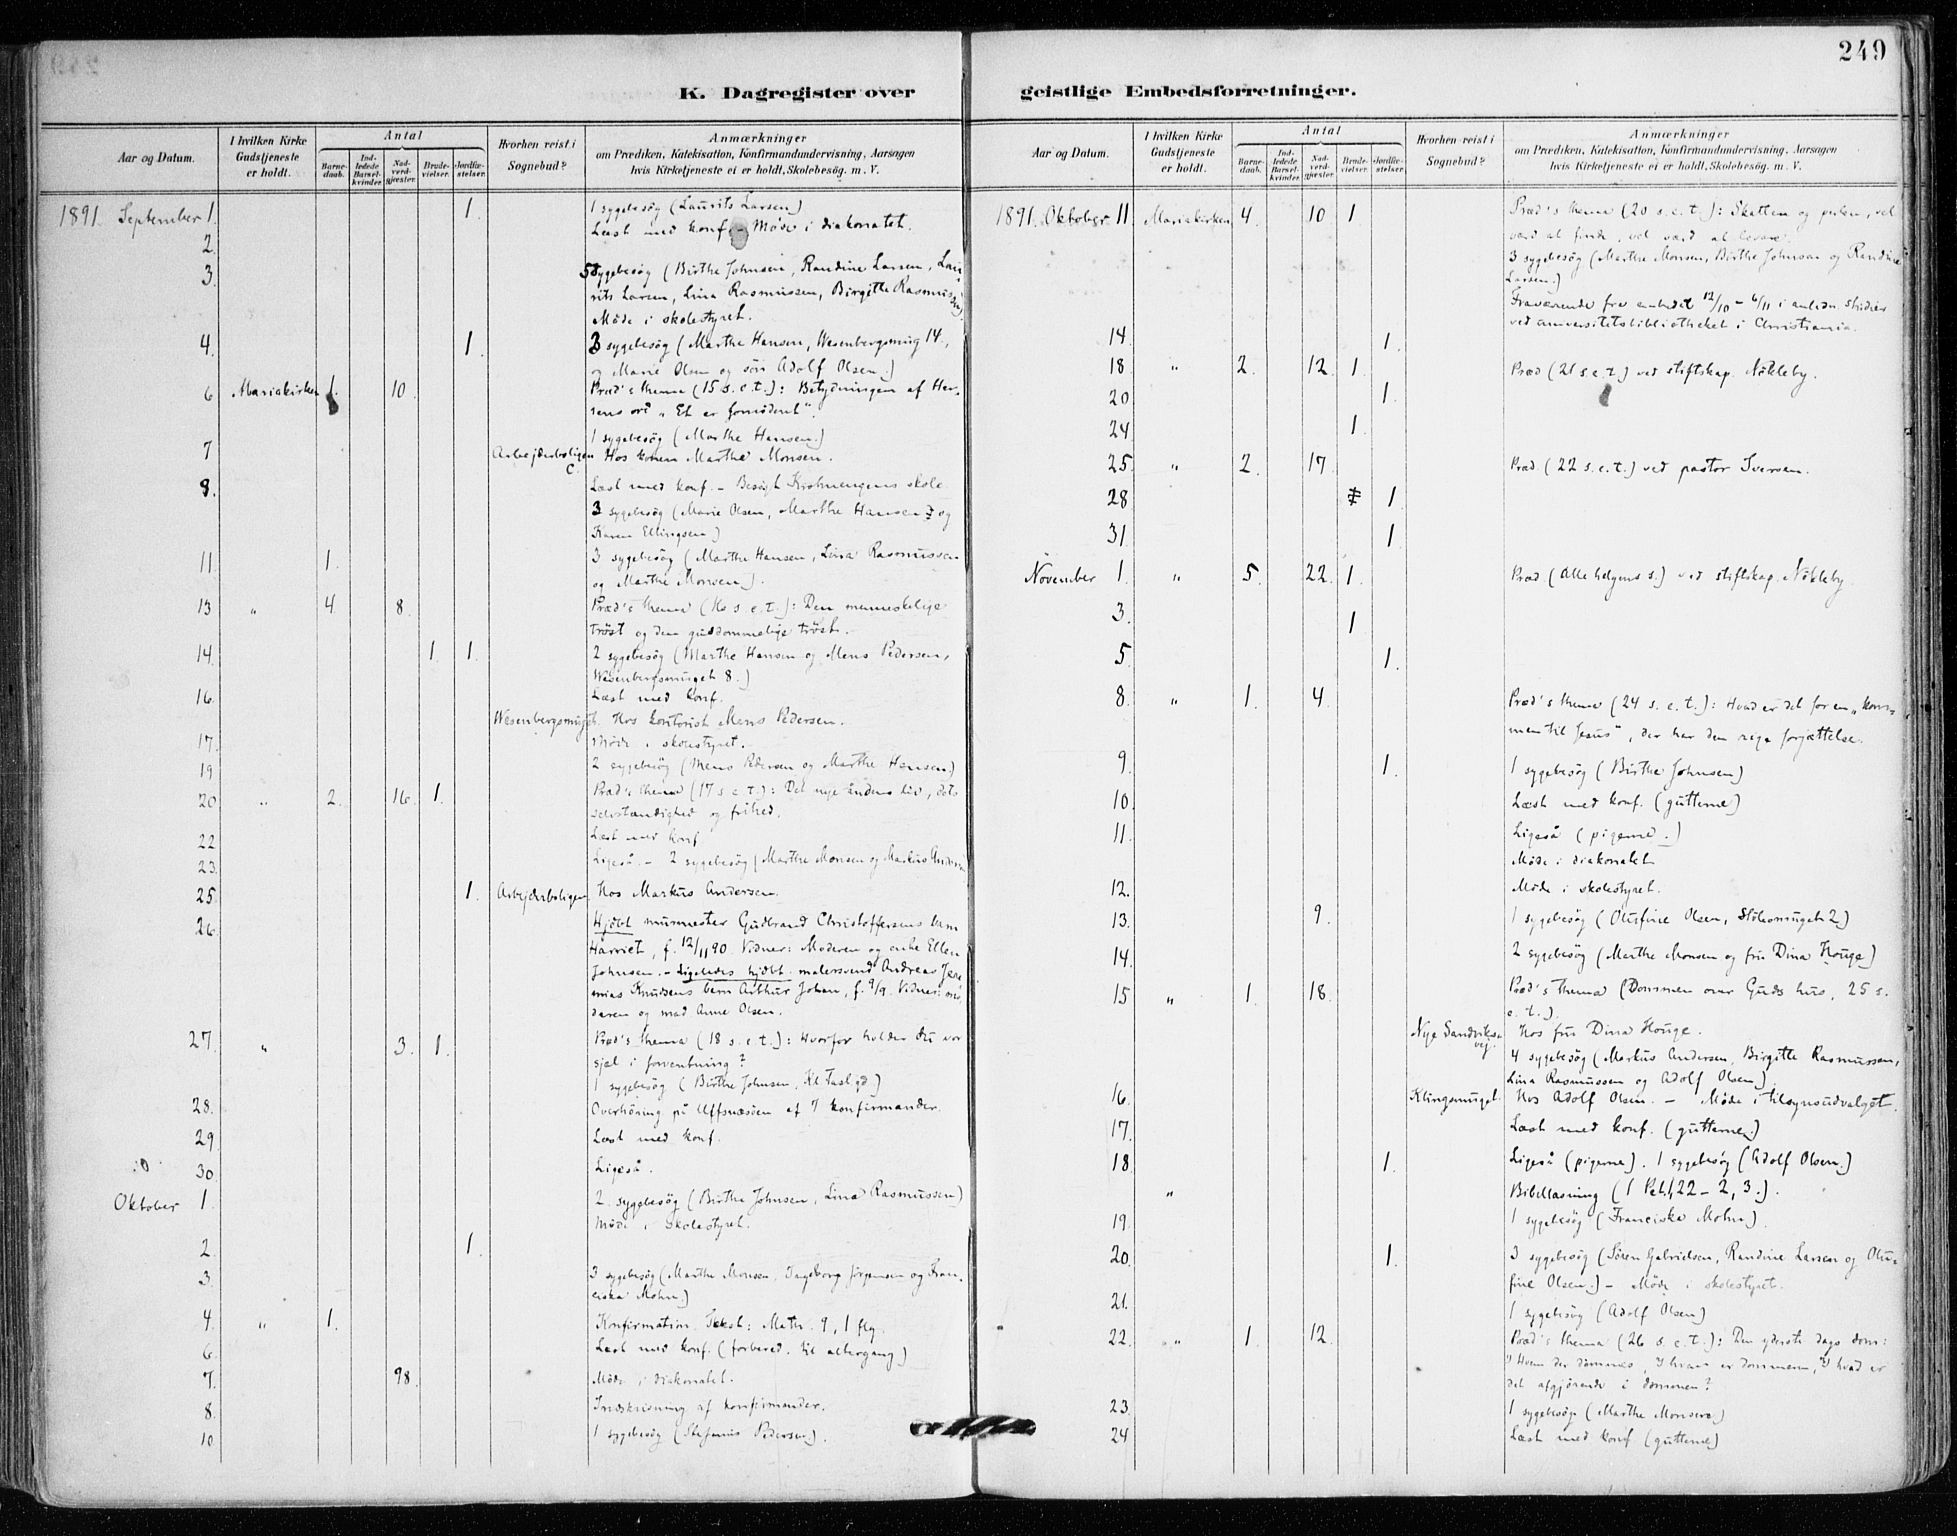 249
K. Dagregister over geistlige Embedsforretninger.
Aar og Datum. I hvilken Kirke Gudstjeneste er holdt. Antal Barnedaab. Indledede Barselkvinder. Nadverdgjæster. Brudevielser. Jordfæstelser. Hvorhen reist i Sognebud? Anmærkninger om Prædiken, Katekisation, Konfirmandundervisning, Aarsagen hvis Kirketjeneste ei er holdt, Skolebesøg. m. V.
1891. September 1. 1. 1 sygebesög (Laurits Larsen)
Læst med konf. – Möde i diakonatet.
2.
3. 5 sygebesög (Birthe Johnsen, Randine Larsen, Lau-
rits Larsen, Lina Rasmussen, Birgitte Rasmussen).
Möde i skolestyret.
4. 1. 3 sygebesög (Marthe Hansen, Wesenbergsmug 14.,
og Marie Olsen og sön Adolf Olsen.)
6 Mariakirken 1. 10. Præd's thema (15 s. e. t.): Betydningen af Her-
rens ord „Et er fornödent".
1 sygebesög (Marthe Hansen.)
7 Arbejderboligen C. Hos konen Marthe Monsen.
8. Læst med konf. – Besögt Krohnengens skole.
3 sygebesög (Marie Olsen, Marthe Hansen og
Karen Ellingsen)
11. 1. 3 sygebesög (Marthe Hansen, Lina Rasmussen
og Marthe Monsen).
13 „ 4. 8. Præd's thema (16 s. e. t.): Den menneskelige
tröst og den guddommelige tröst.
14. 1. 1. 2 sygebesög (Marthe Hansen og Mens Pedersen,
Wesenbergsmuget 8.)
16. Læst med konf.
Wesenbergsmuget. Hos kontorist Mens Pedersen.
17. Möde i skolestyret.
19 2 sygebesög (Mens Pedersen og Marthe Hansen)
20 „ 2. 16. 1. Præd's thema (17 s. e. t.): Det nye åndens liv, dets
selvstændighed og frihed.
22 Læst med konf
23. Ligeså. – 2 sygebesög (Marthe Monsen og Markus Andersen
25. 1. Arbejderboligen. Hos Markus Andersen.
26. Hjdbt murmester Gudbrand Christoffersens barn
Harriet, f. 12/11 90. Vidner: Moderen og enke Ellen
Johnsen. – Ligeledes hjdbt. malersvend Andreas Jere-
mias Knudsens barn Arthur Johan, f. 9/9. Vidner: mo-
deren og mad Anne Olsen.
27. „ 3. 1. Præd's thema (18 s. e. t.): Hvorfor holder du vor
sjæl i forventning?
1 sygebesög (Birthe Johnsen,
28. Overhöring på Ulfsnæsöen af 7 konfirmander.
29 Læst med konf.
30 Ligeså.
Oktober 1. 2 sygebesög (Birthe Johnsen, Lina Rasmussen)
Möde i skolestyret.
2. 1.
3. 3 sygebesög (Marthe Monsen, Ingeborg Jörgensen og Fran-
ciska Mohn.)
4. „ 1. Konfirmation. Text: Math. 9, 1 flg.
6 Læst med konf. (forbered. til altergang)
7. 98. Möde i diakonatet.
8. Indskrivning af konfirmander.
10 1 sygebesög (Pedersen).
Aar og Datum. I hvilken Kirke Gudstjeneste er holdt. Antal Barnedaab. Indledede Barselkvinder. Nadverdgjæster. Brudevielser. Jordfæstelser. Hvorhen reist i Sognebud? Anmærkninger om Prædiken, Katekisation, Konfirmandundervisning, Aarsagen hvis Kirketjeneste ei er holdt, Skolebesøg. m. V.
1891. Oktober 11. Mariakirken 4. 10 1 Præd's thema (20 s. e. t.): Skatten og perlen, vel
værd at finde, vel værd at bevare.
3 sygebesög (Marthe Monsen, Birthe Johnsen og Randine
Larsen.)
Fraværende fra embedet 12/10 – 6/11 i anledn. studier
ved universitetsbibliotheket i Christiania.
14 1.
18 „ 2. 12. 1. Præd (21 s. e. t.) ved stiftskap. Nökleby.
20 1.
24 1.
25 „ 2 17. Præd. (22 s. e. t.) ved pastor Iversen.
28 1
31 1.
November 1. „ 5. 22. 1. Præd (Alle helgens s.) ved stiftskap. Nökleby.
3. 1
5 1.
8. „ 1. 4. Præd's thema (24 s. e. t.): Hvad er det for en „kom-
men til Jesus", der har den rege forjættelse.
9. 1. 1 sygebesög (Birthe Johnsen)
10. Læst med konf. (gutterne)
11. Ligeså (pigerne.)
Möde i diakonatet
12. Möde i skolestyret.
13. 9. 1 sygebesög (Olufine Olsen, Stölesmuget 2)
14. 2 sygebesög (Marthe Monsen og fru Dina Houge)
15 „ 1. 18. Præd's thema (Dommen over Guds hus, 25 s.
e. t.).
Nye Sandviksvej. Hos fru Dina Houge.
4 sygebesög (Markus Andersen, Birgitte Rasmussen,
Lina Rasmussen og Adolf Olsen)
16. Klingsmuget. Hos Adolf Olsen. – Möde i tilsynsudvalget.
17. Læst med konf. (gutterne)
18 1. Ligeså (pigerne). 1 sygebesög (Adolf Olsen.)
„ Bibellæsning (1 Pet. 1, 22 – 2, 3.).
19. 1 sygebesög (Franciska Mohn)
20. 1. 3 sygebesög (Sören Gabrielsen, Randine Larsen og Olu-
fine Olsen.) – Möde i skolestyret.
21. 1 sygebesög (Adolf Olsen)
22. „ 1. 12. Præd's thema (26 s. e. t.): Den yderste dags dom:
1) Hvem der dömmes, 2) hvem er dommeren, 3) hvad er
det afgjörende i dommen?
23. 1 sygebesög (Marthe Monsen.)
24 Læst med konf (gutterne)